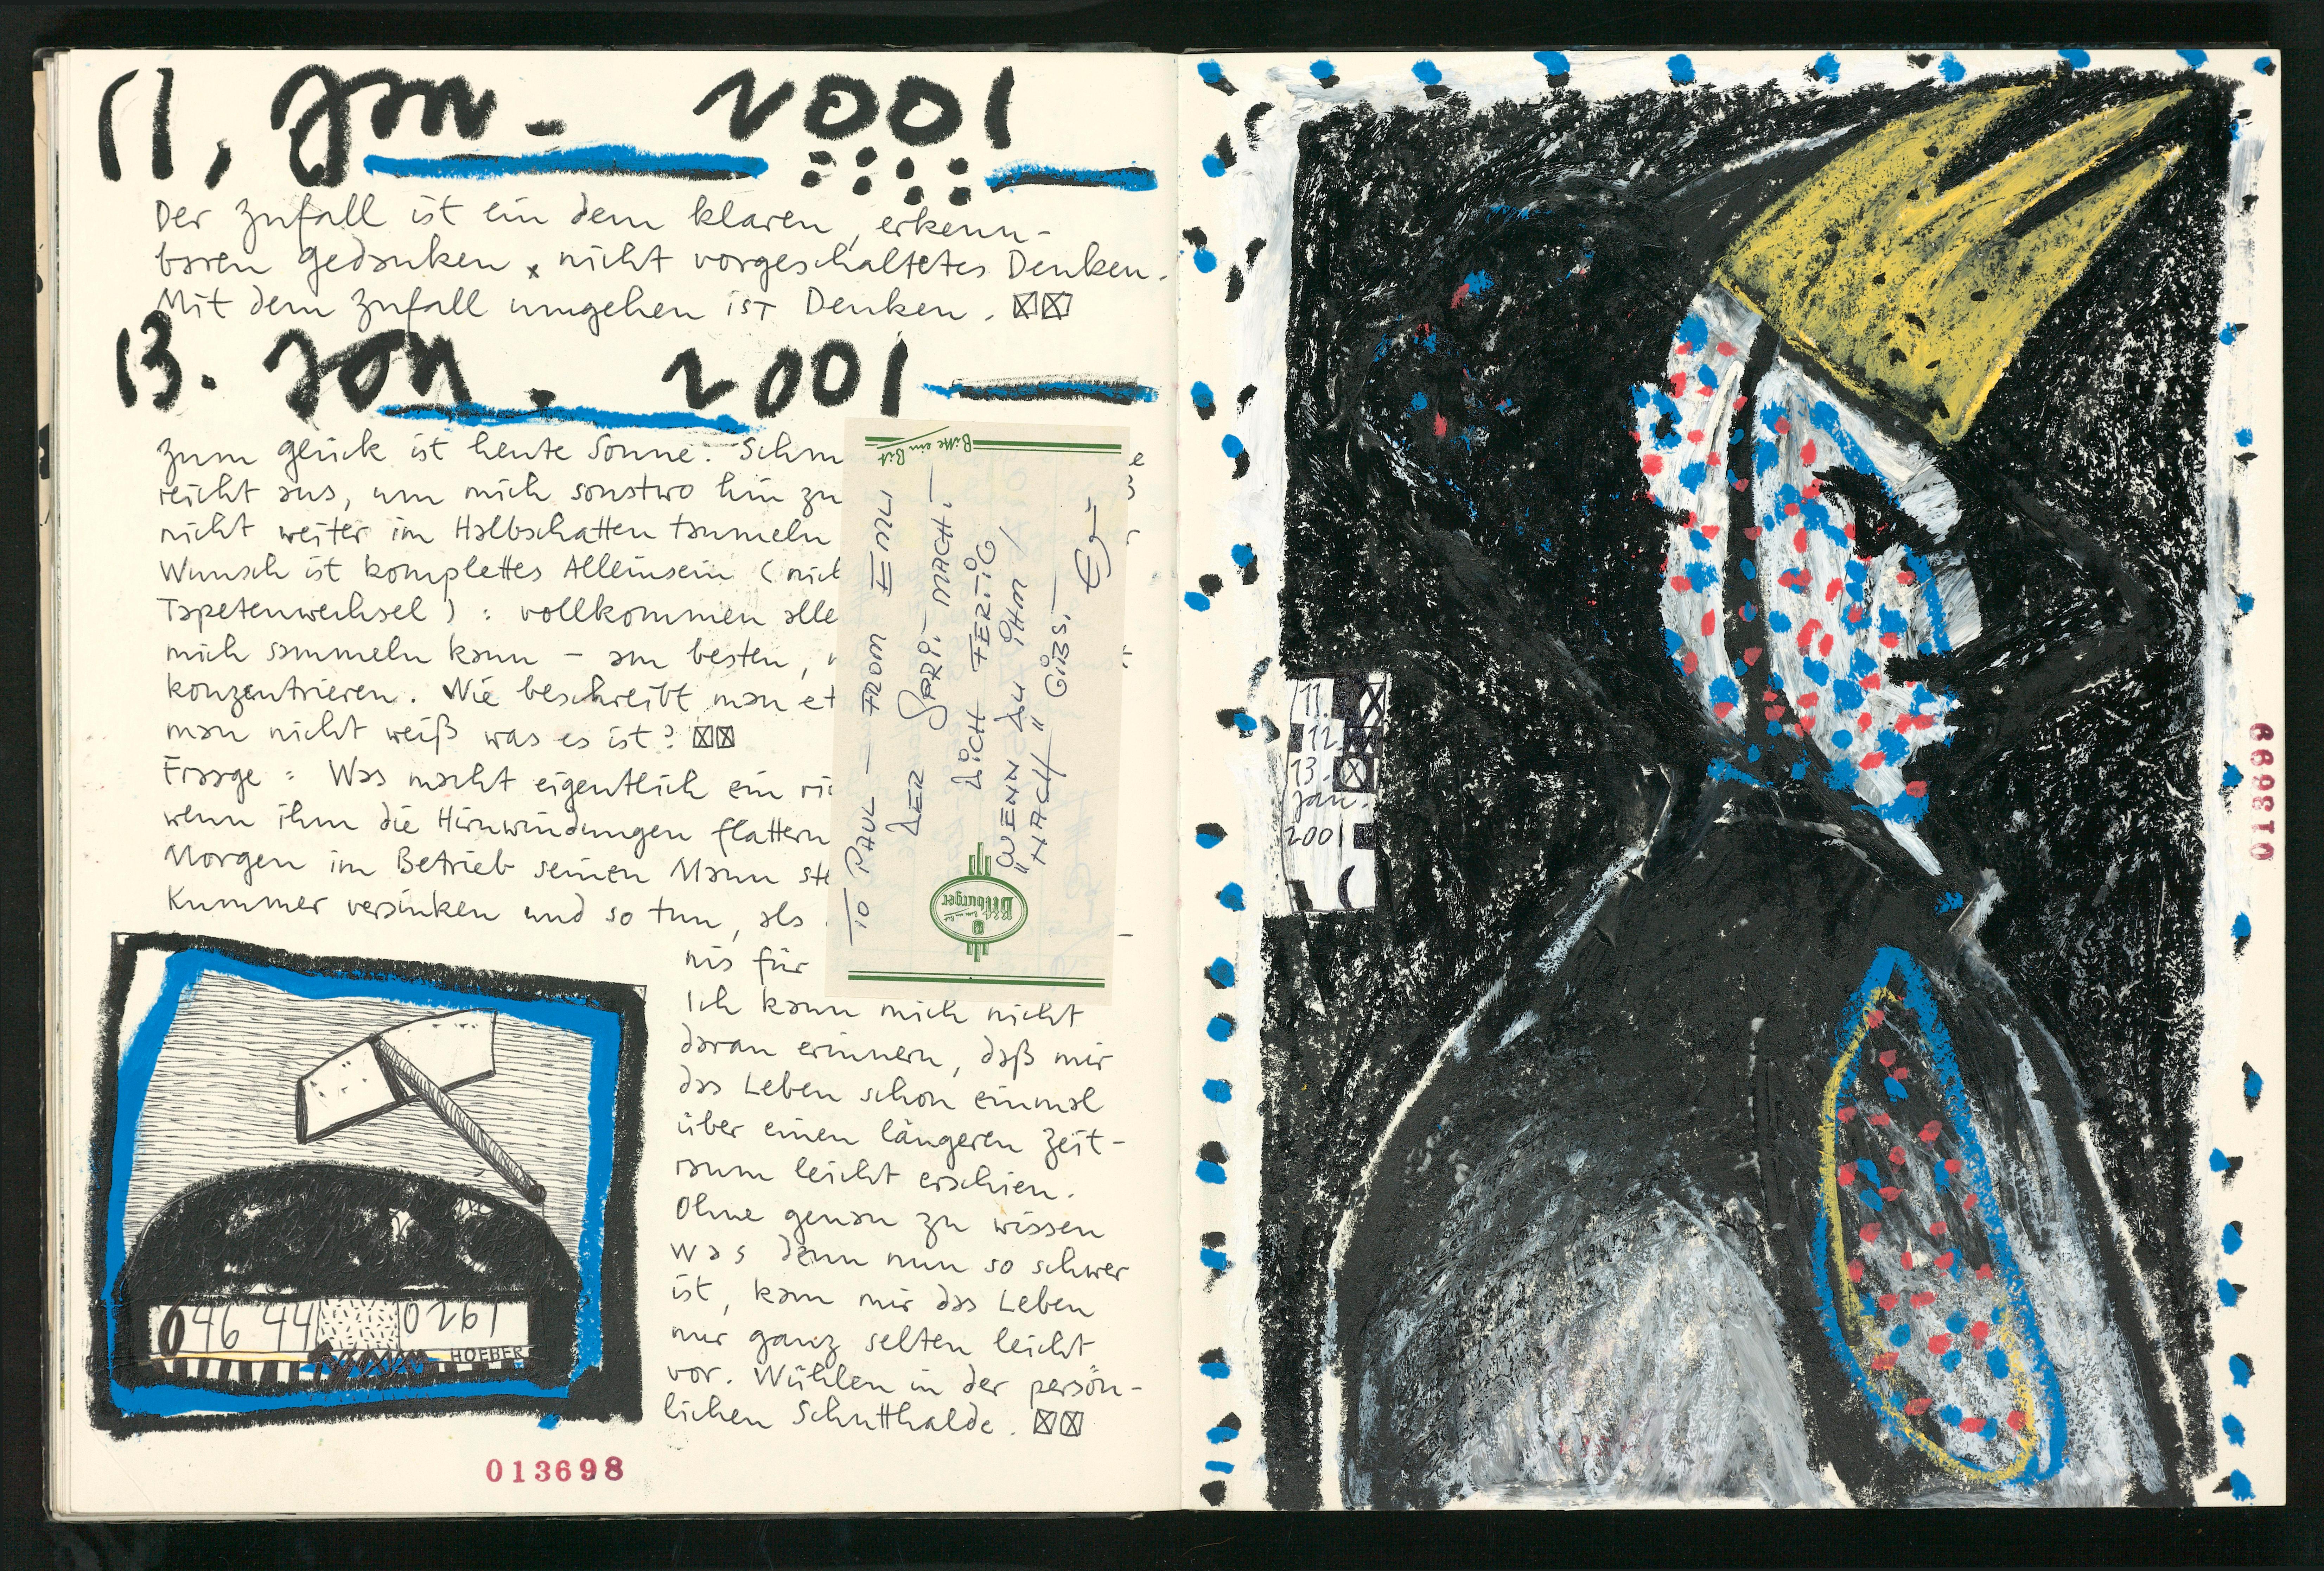 11, Jan - 2001
Der Zufall ist ein dem klaren, erkenn-
baren Gedanken x nicht vorgeschaltetes Denken.
Mit dem Zufall umgehen ist Denken.
13. Jan. 2001
Zum Glück ist heute Sonne. Schm
reicht aus, um mich sonstwo hin zu
nicht weiter im Halbschatten taumeln
Wunsch ist komplettes Alleinsein (nich
Tapetenwechsel) : vollkommen alle
mich sammeln kann – am besten,
konzentrieren. Wie beschreibt man et
man nicht weiß was es ist?
Frage : Was macht eigentlich ein
wenn ihm die Hirnwindungen flattern
Morgen im Betrieb seinen Mann ste
Kummer versinken und so tun, als
nis für
Ich kann mich nicht
daran erinnern, daß mir
das Leben schon einmal
über einen längeren Zeit-
raum leicht erschien.
Ohne genau zu wissen
was denn nun so schwer
ist, kam mir das Leben
nur ganz selten leicht
vor. Wühlen in der persön-
lichen Schutthalde.
Bitte ein Bit
TO PAUL – FROM EMU
DER SPRI – MACHT –
DICH FERTIG
"WENN DU IHM
NACH" GIBST –
Bitburger
046 44 0261
HOEBER
013698
11.
12.
13.
Jan.
2001
013699